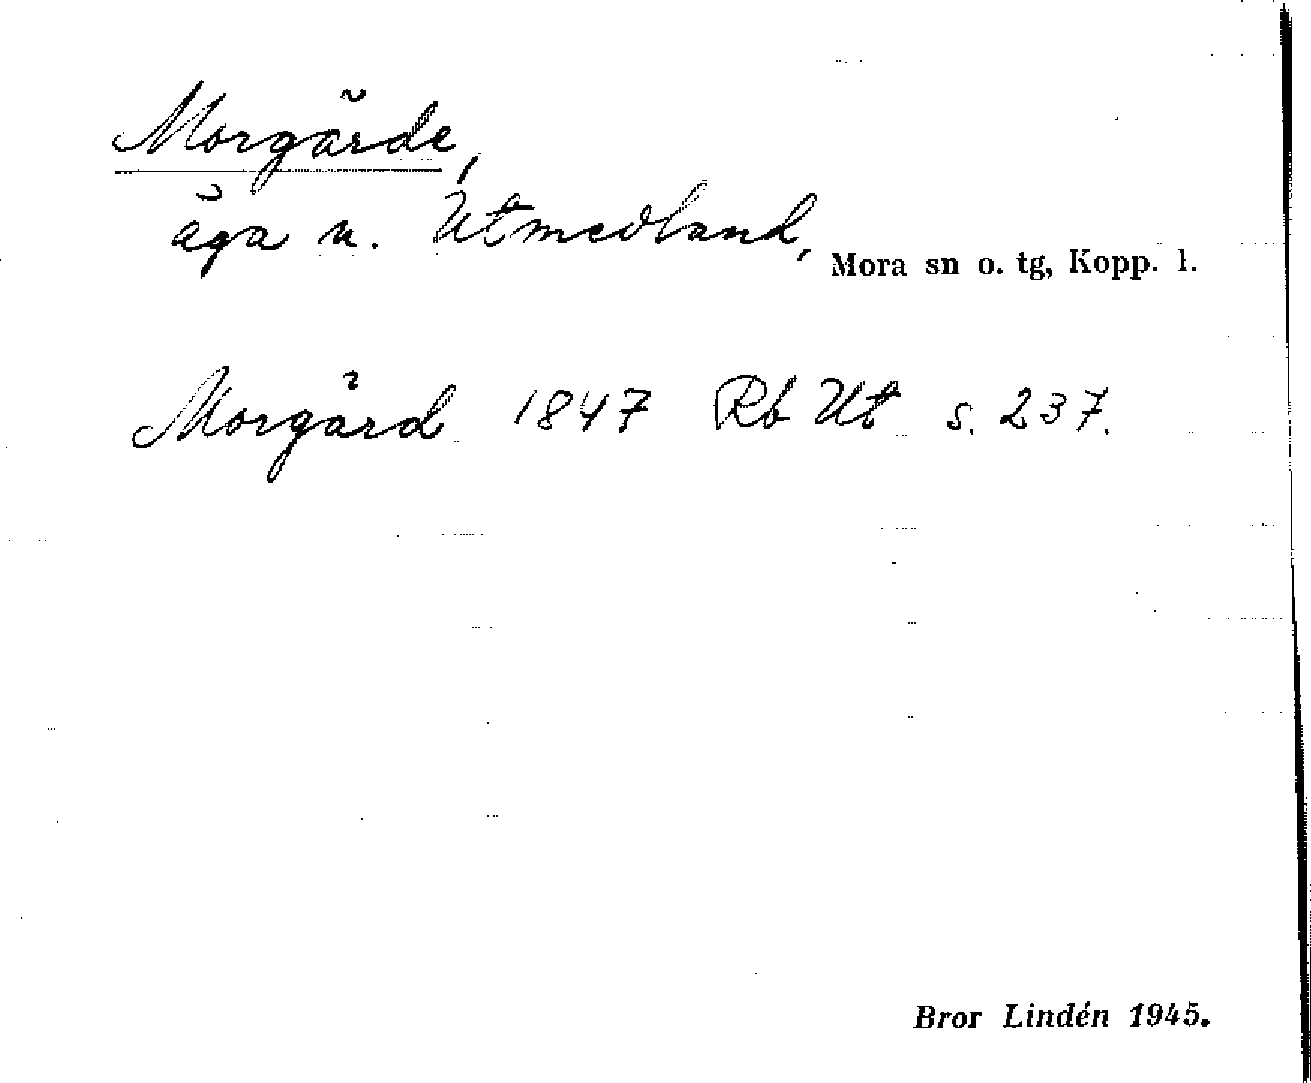 Morgärde,
äga u. Utmedland, Mora sn o. tg, Kopp. l.
Morgärd 1847 Rb Ut s. 237.
Bror Lindén 1945.